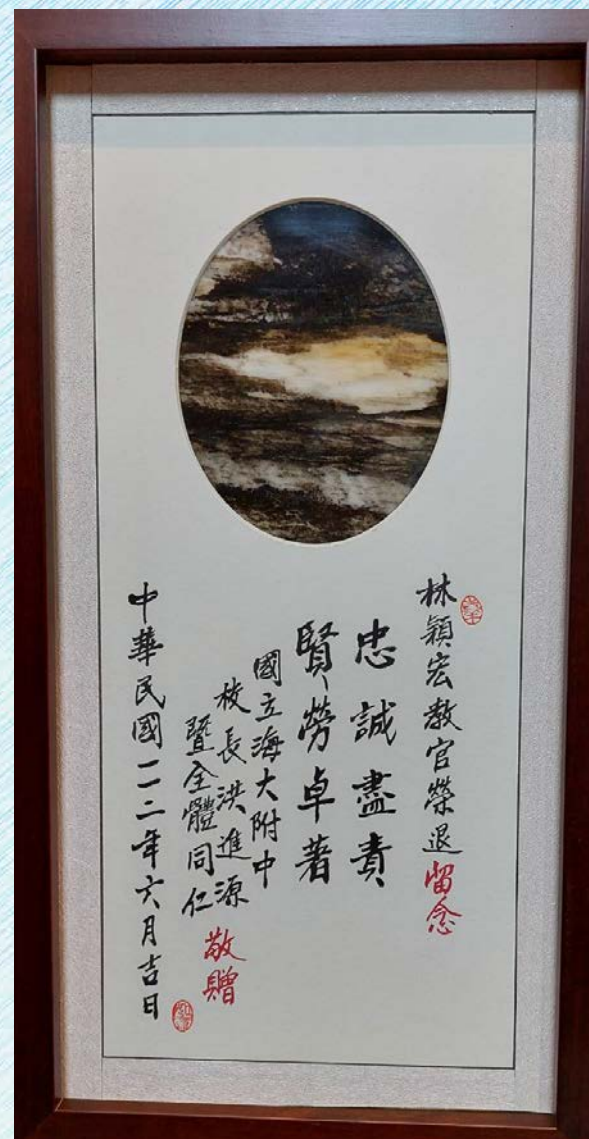 林穎宏教官榮退留念
忠誠盡責
賢勞卓著
國立海大附中
校長洪進源
暨全體同仁
敬贈
中華民國一一二年六月吉日